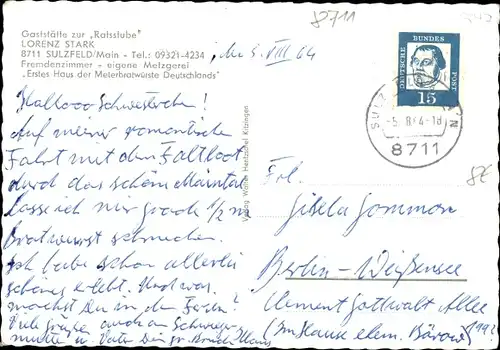 8711
Gaststätte zur „Ratsstube"
LORENZ STARK
8711 SULZFELD/Main - Tel.: 09321-4234
Fremdenzimmer - eigene Metzgerei
„Erstes Haus der Meterbratwürste Deutschlands"
5. VIII 64
Halloo Schwesterchen!
Auf meiner romantischen
Fahrt mit dem Faltboot
durch das schöne Maintal
lasse ich mir grad 1/2 m
Bratwurst schmecken.
Ich habe schon allerlei
schönes erlebt. Und was
machst Du in den Ferien?
Viele Grüße auch an Schwieger-
mutter u. Vater Dein gr. Bruder Klaus
Verlag Walter Hentzschel Kitzingen
DEUTSCHE BUNDES POST
15
-5. 8. 64-18
8711
Frl.
Gisela Gommon
Berlin-Weißensee
Clement Gottwalt Allee
(Im Hause ehem. Bärow)